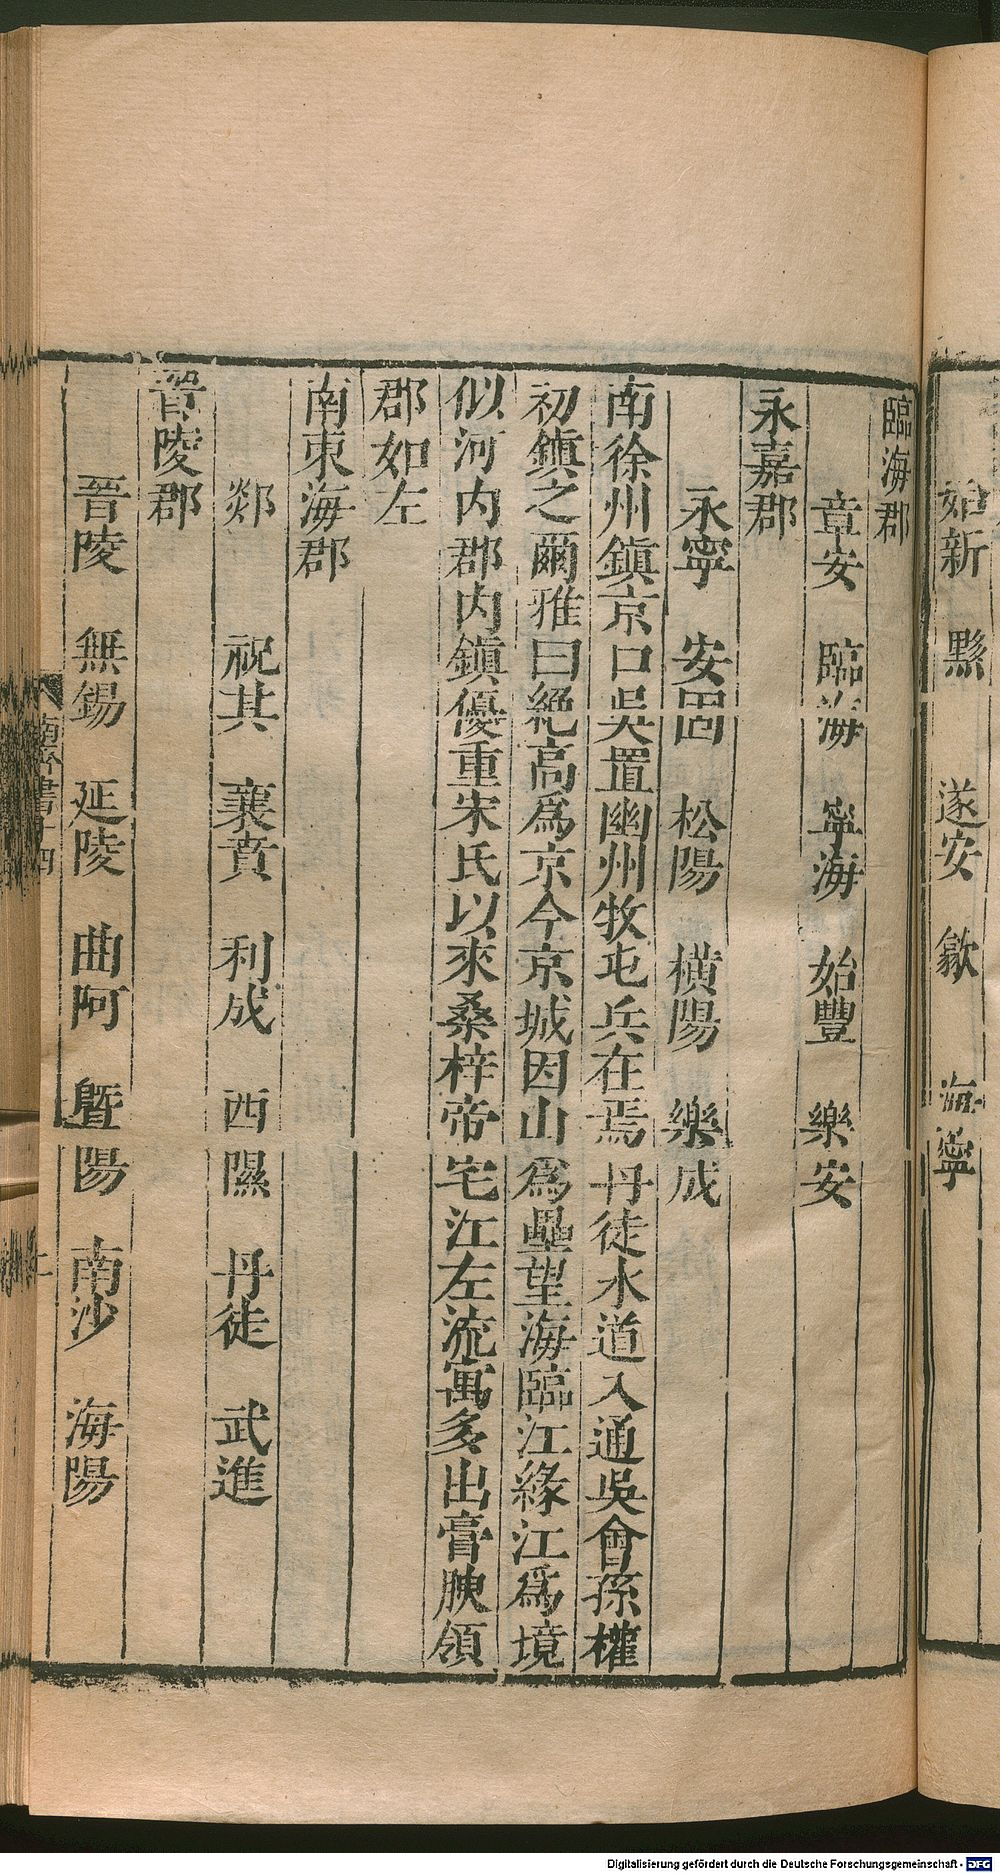 始新　黟　遂安　歙　海寧
臨海郡
章安　臨海　寧海　始豐　樂安
永嘉郡
永寧　安固　松陽　橫陽　樂成
南徐州鎮京口吳置幽州牧屯兵在焉丹徒水道入通吳會孫權
初鎮之爾雅曰絕高爲京今京城因山爲壘望海臨江緣江爲境
似河內郡內鎮優重宋氏以來桑梓帝宅江左流寓多出膏腴領
郡如左
南東海郡
郯　祝其　襄賁　利成　西隰　丹徒　武進
晉陵郡
晉陵　無錫　延陵　曲阿　暨陽　南沙　海陽
南齊書十四
Digitalisierung gefördert durch die Deutsche Forschungsgemeinschaft - DFG